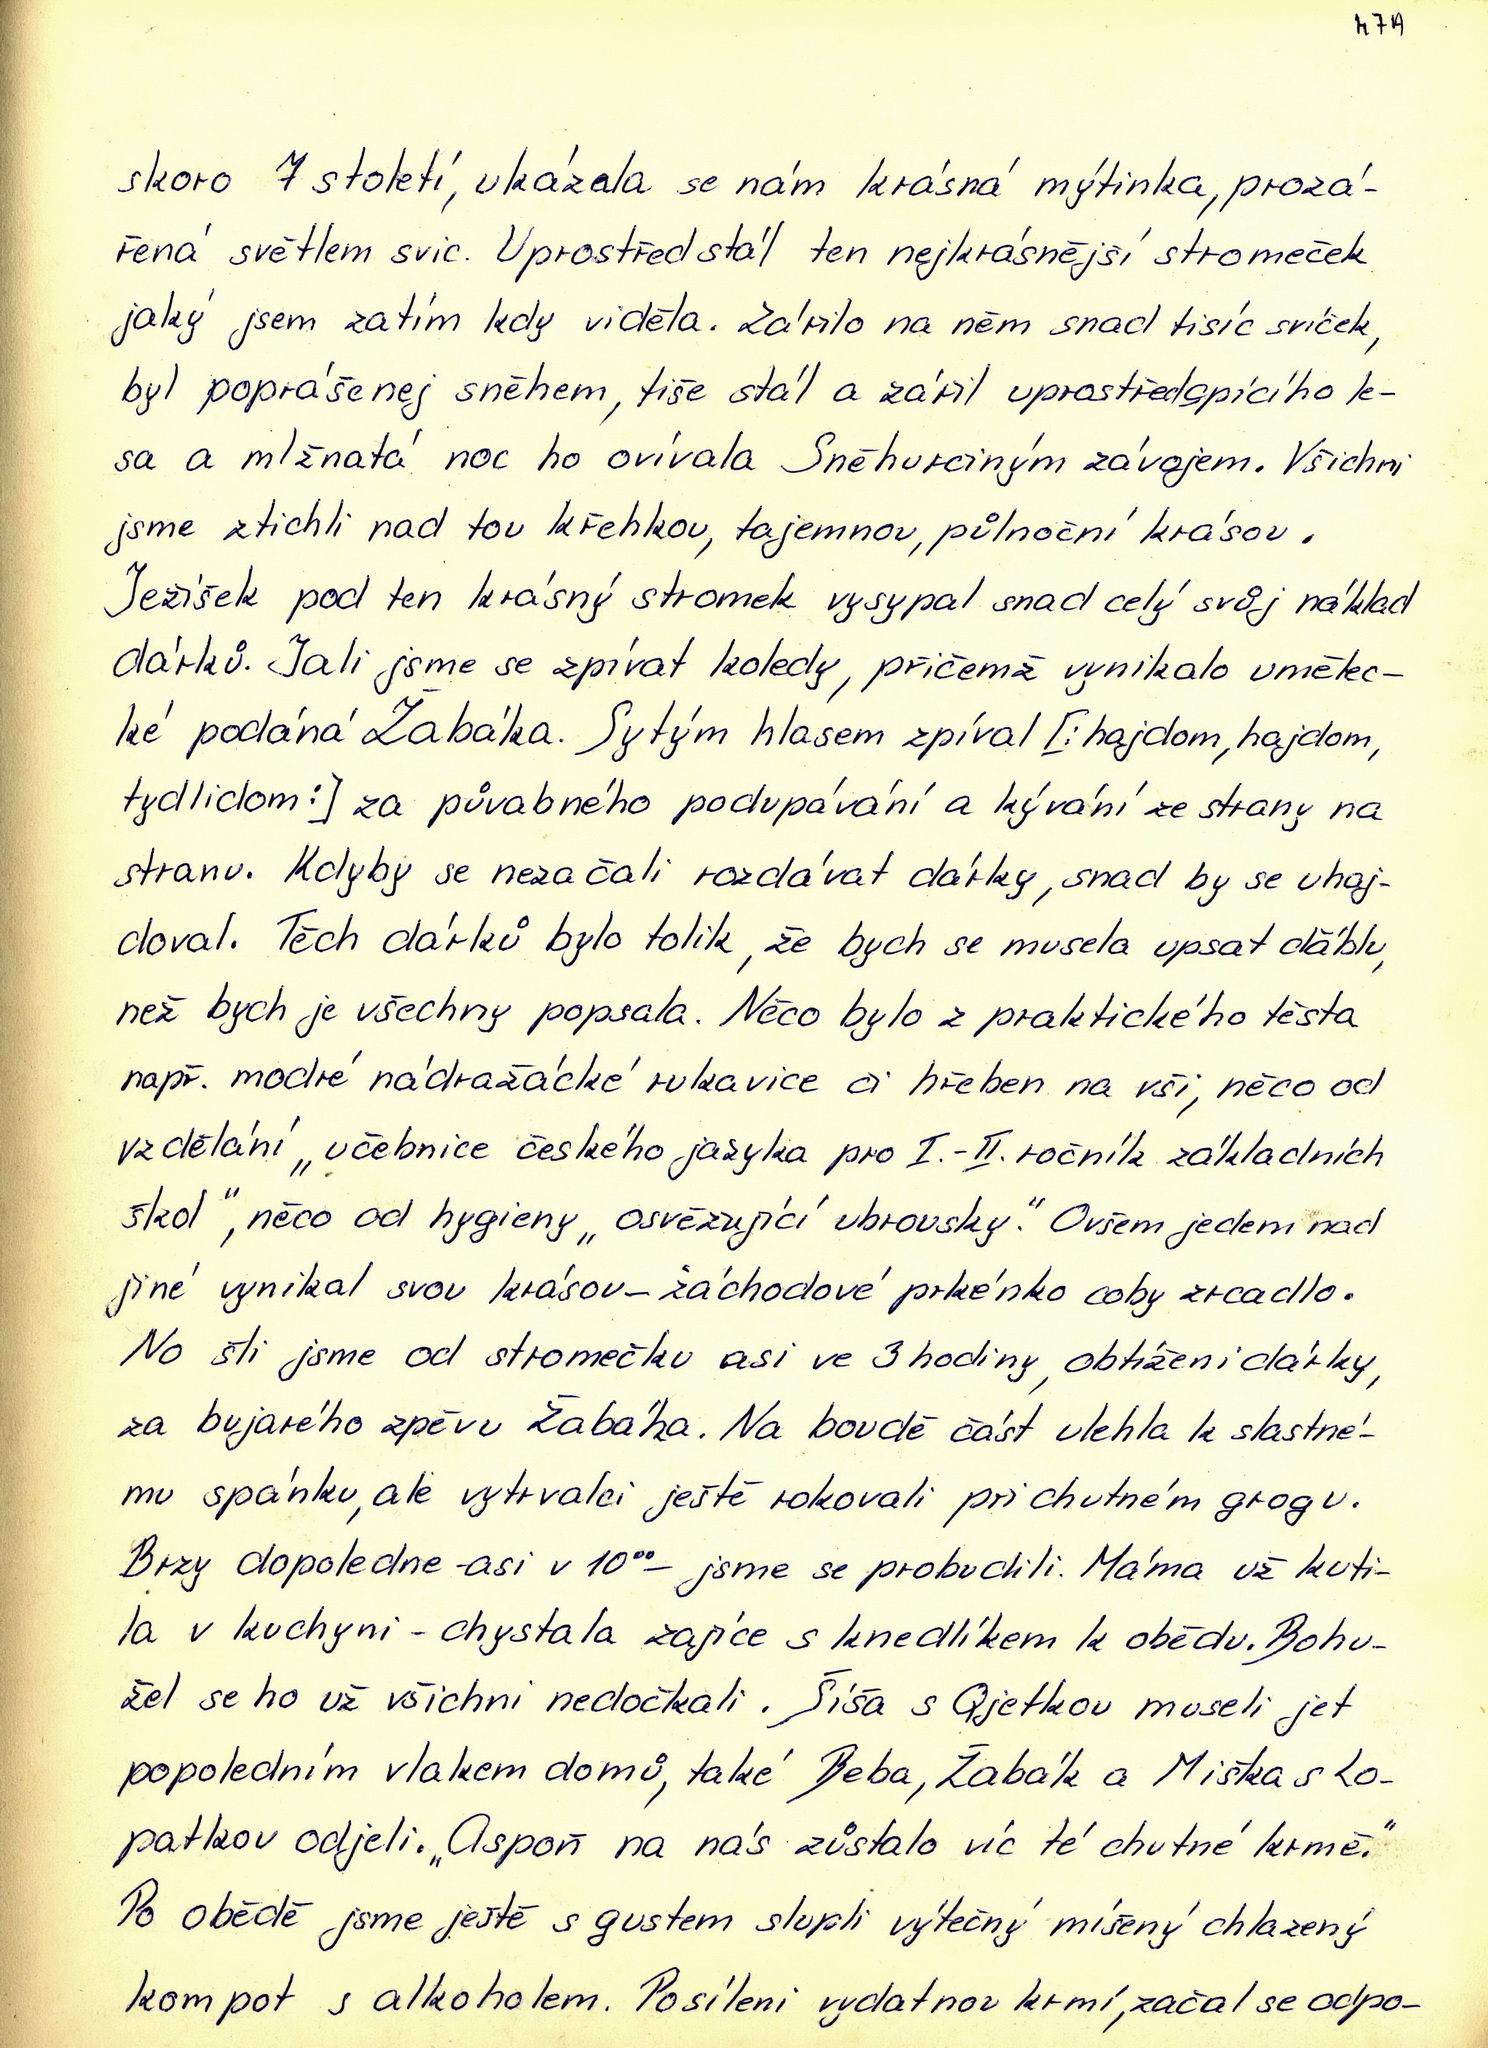 47A
skoro 7 století, ukázala se nám krásná mýtinka, prozá-
řená světlem svic. Uprostřed stál ten nejkrásnější stromeček
jaký jsem zatím kdy viděla. Zářilo na něm snad tisíc svíček,
byl poprášenej sněhem, tiše stál a zářil uprostřed spícího le-
sa a mlžnatá noc ho ovívala Sněhurčiným závojem. Všichni
jsme ztichli nad tou křehkou, tajemnou, půlnoční krásou.
Ježíšek pod ten krásný stromek vysypal snad celý svůj náklad
dárků. Jali jsme se zpívat koledy, přičemž vynikalo umělec-
ké podáná Žabáka. Sytým hlasem zpíval [: hajdom, hajdom,
tydlidom :] za půvabného podupávání a kývání ze strany na
stranu. Kdyby se nezačali rozdávat dárky, snad by se uhaj-
doval. Těch dárků bylo tolik, že bych se musela upsat ďáblu,
než bych je všechny popsala. Něco bylo z praktického těsta
např. modré nádražácké rukavice či hřeben na vši, něco od
vzdělání „učebnice českého jazyka pro I.-II. ročník základních
škol", něco od hygieny „osvěžující ubrousky." Ovšem jeden nad
jiné vynikal svou krásou – záchodové prkénko coby zrcadlo.
No šli jsme od stromečku asi ve 3 hodiny, obtíženi dárky,
za bujarého zpěvu Žabáka. Na boudě část ulehla k slastné-
mu spánku, ale vytrvalci ještě rokovali při chutném grogu.
Brzy dopoledne - asi v 10⁰⁰ – jsme se probudili. Máma už kuti-
la v kuchyni - chystala zajíce s knedlíkem k obědu. Bohu-
žel se ho už všichni nedočkali. Šíša s Qjetkou museli jet
popoledním vlakem domů, také Beba, Žabák a Miška s Lo-
patkou odjeli. „Aspoň na nás zůstalo víc té chutné krmě."
Po obědě jsme ještě s gustem slupli výtečný míšený chlazený
kompot s alkoholem. Posíleni vydatnou krmí, začal se odpo-